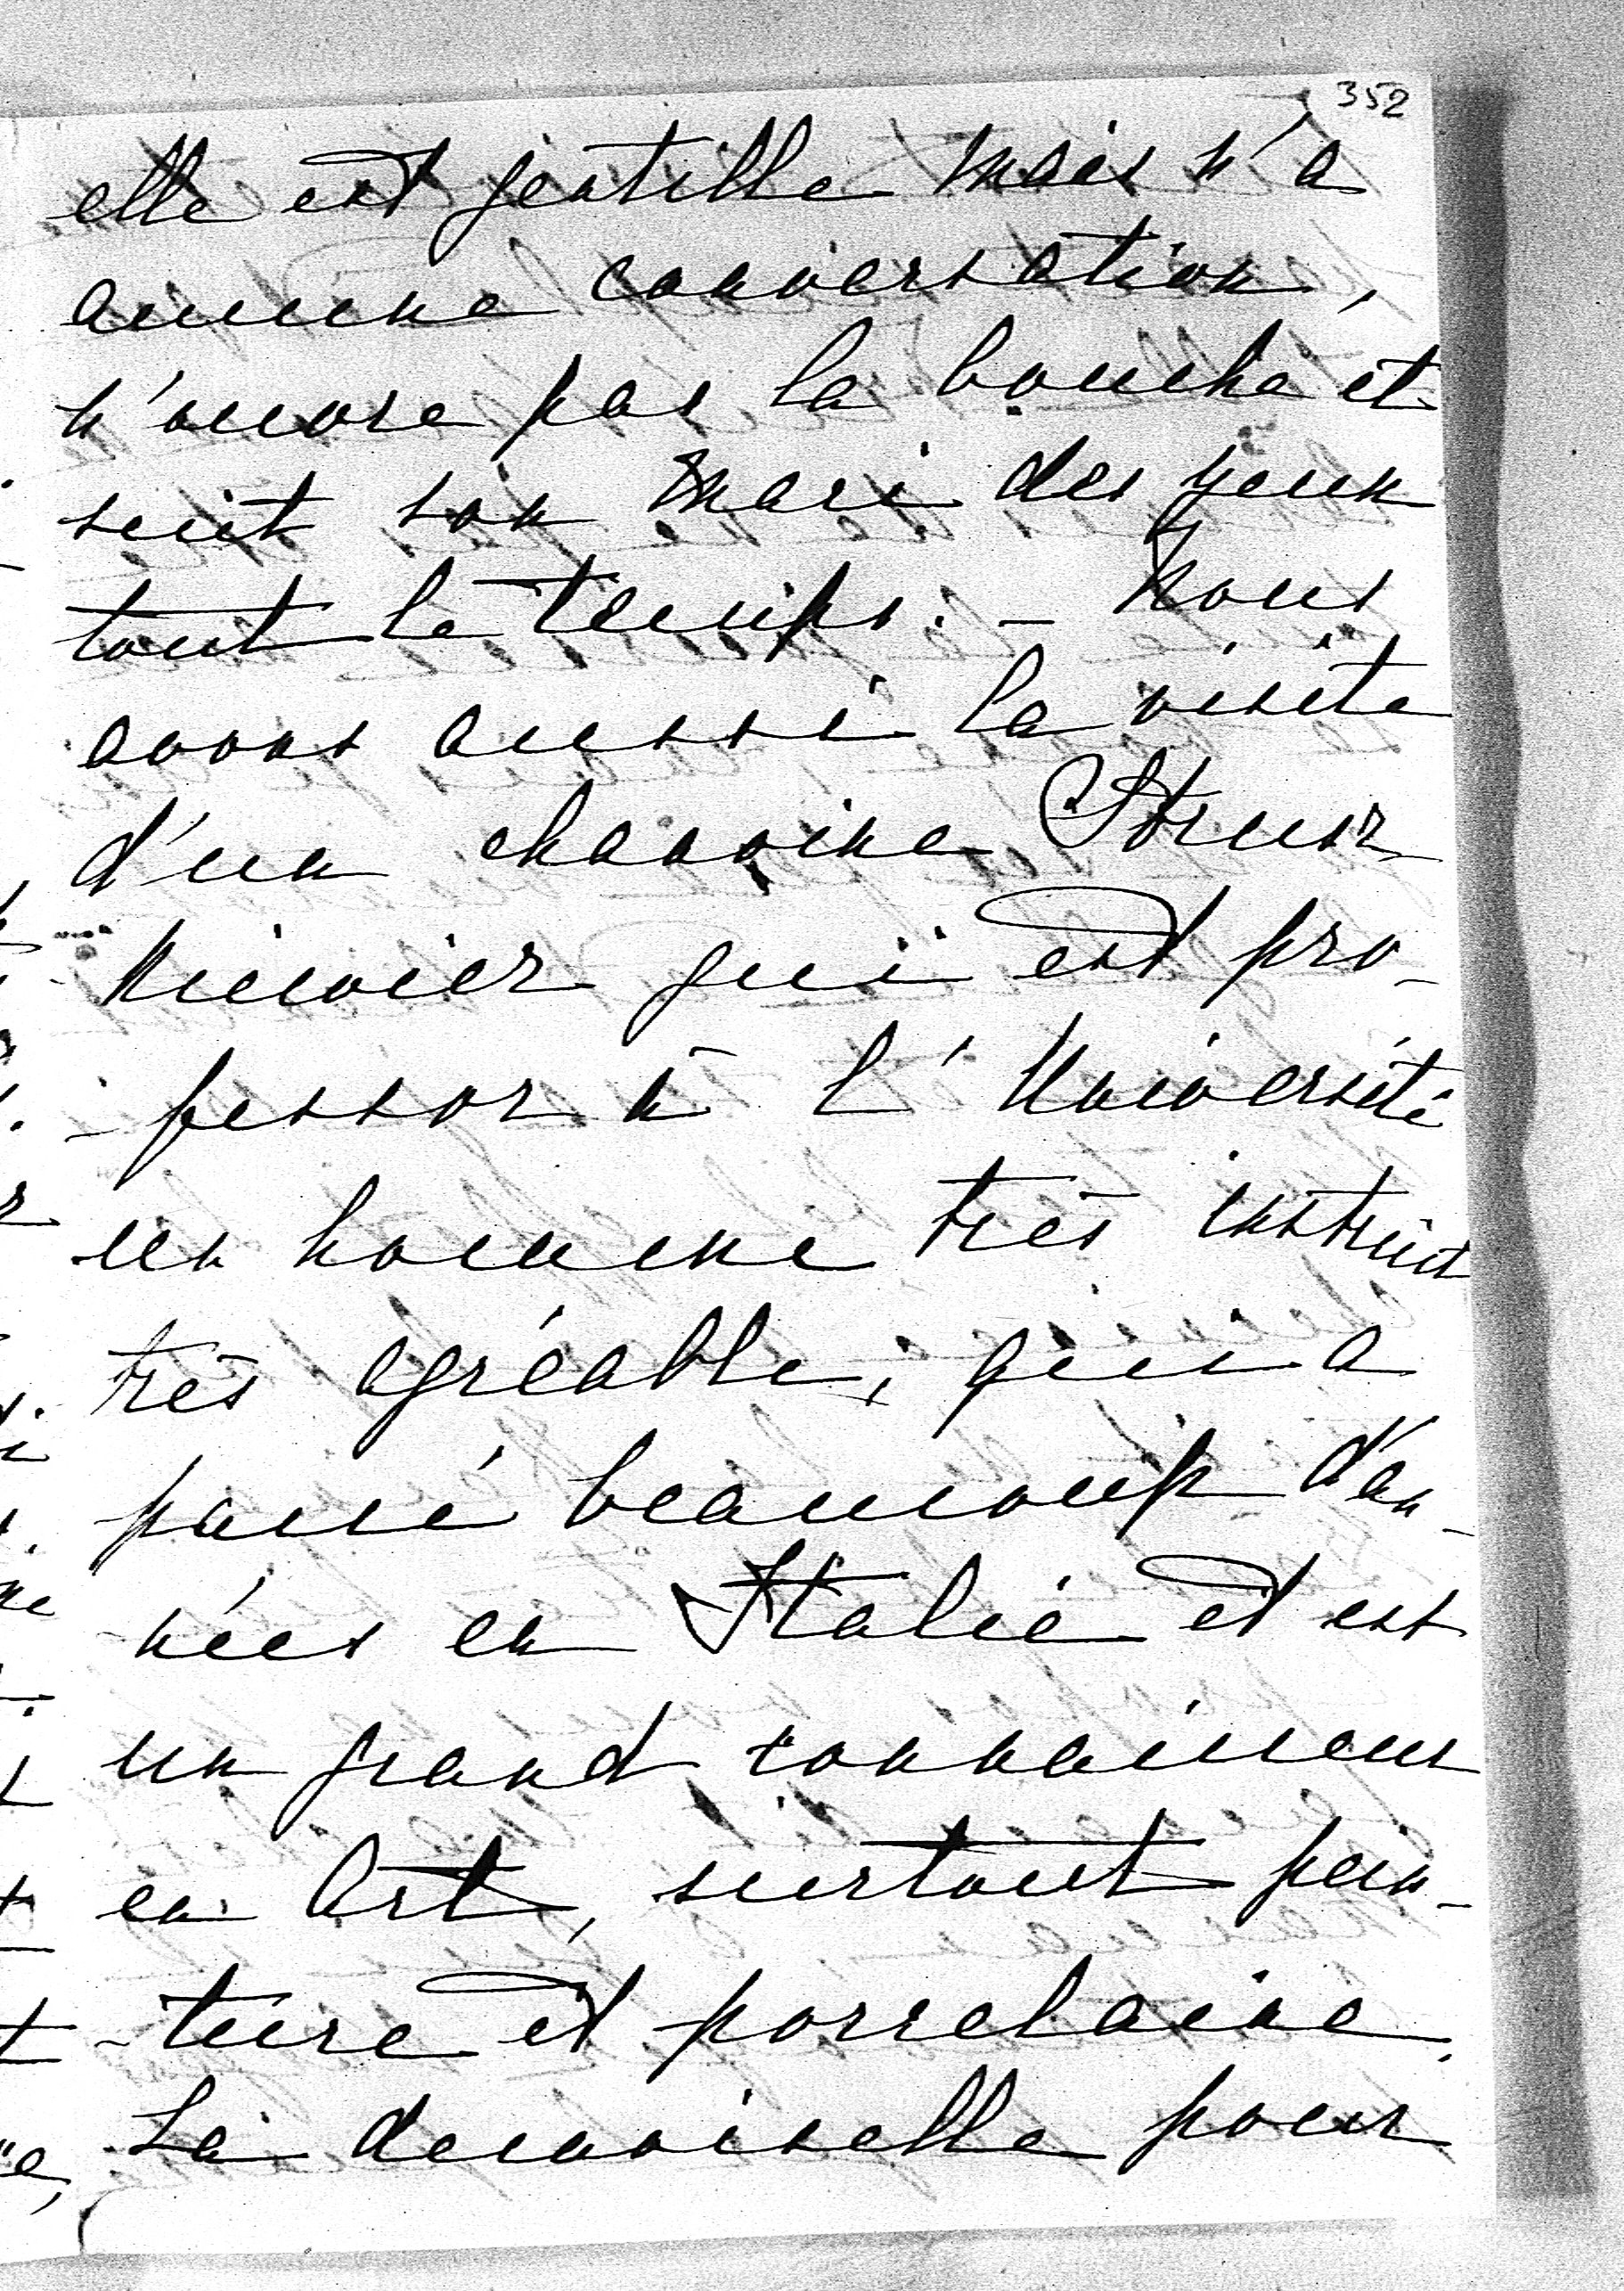 352
elle est gentille mais n'a
aucune conversation,
n'ouvre pas la bouche et
suit son mari des yeux
tout le temps. - Nous
avons aussi la visite
d'un chanoine
qui est pro-
-fessor à l'Université
un homme très instruit
très agréable, qui a
passé beaucoup d'an-
nées en Italie et est
un grand connaisseur
en Art, surtout pein-
-ture et porcelaine.
La demoiselle pour